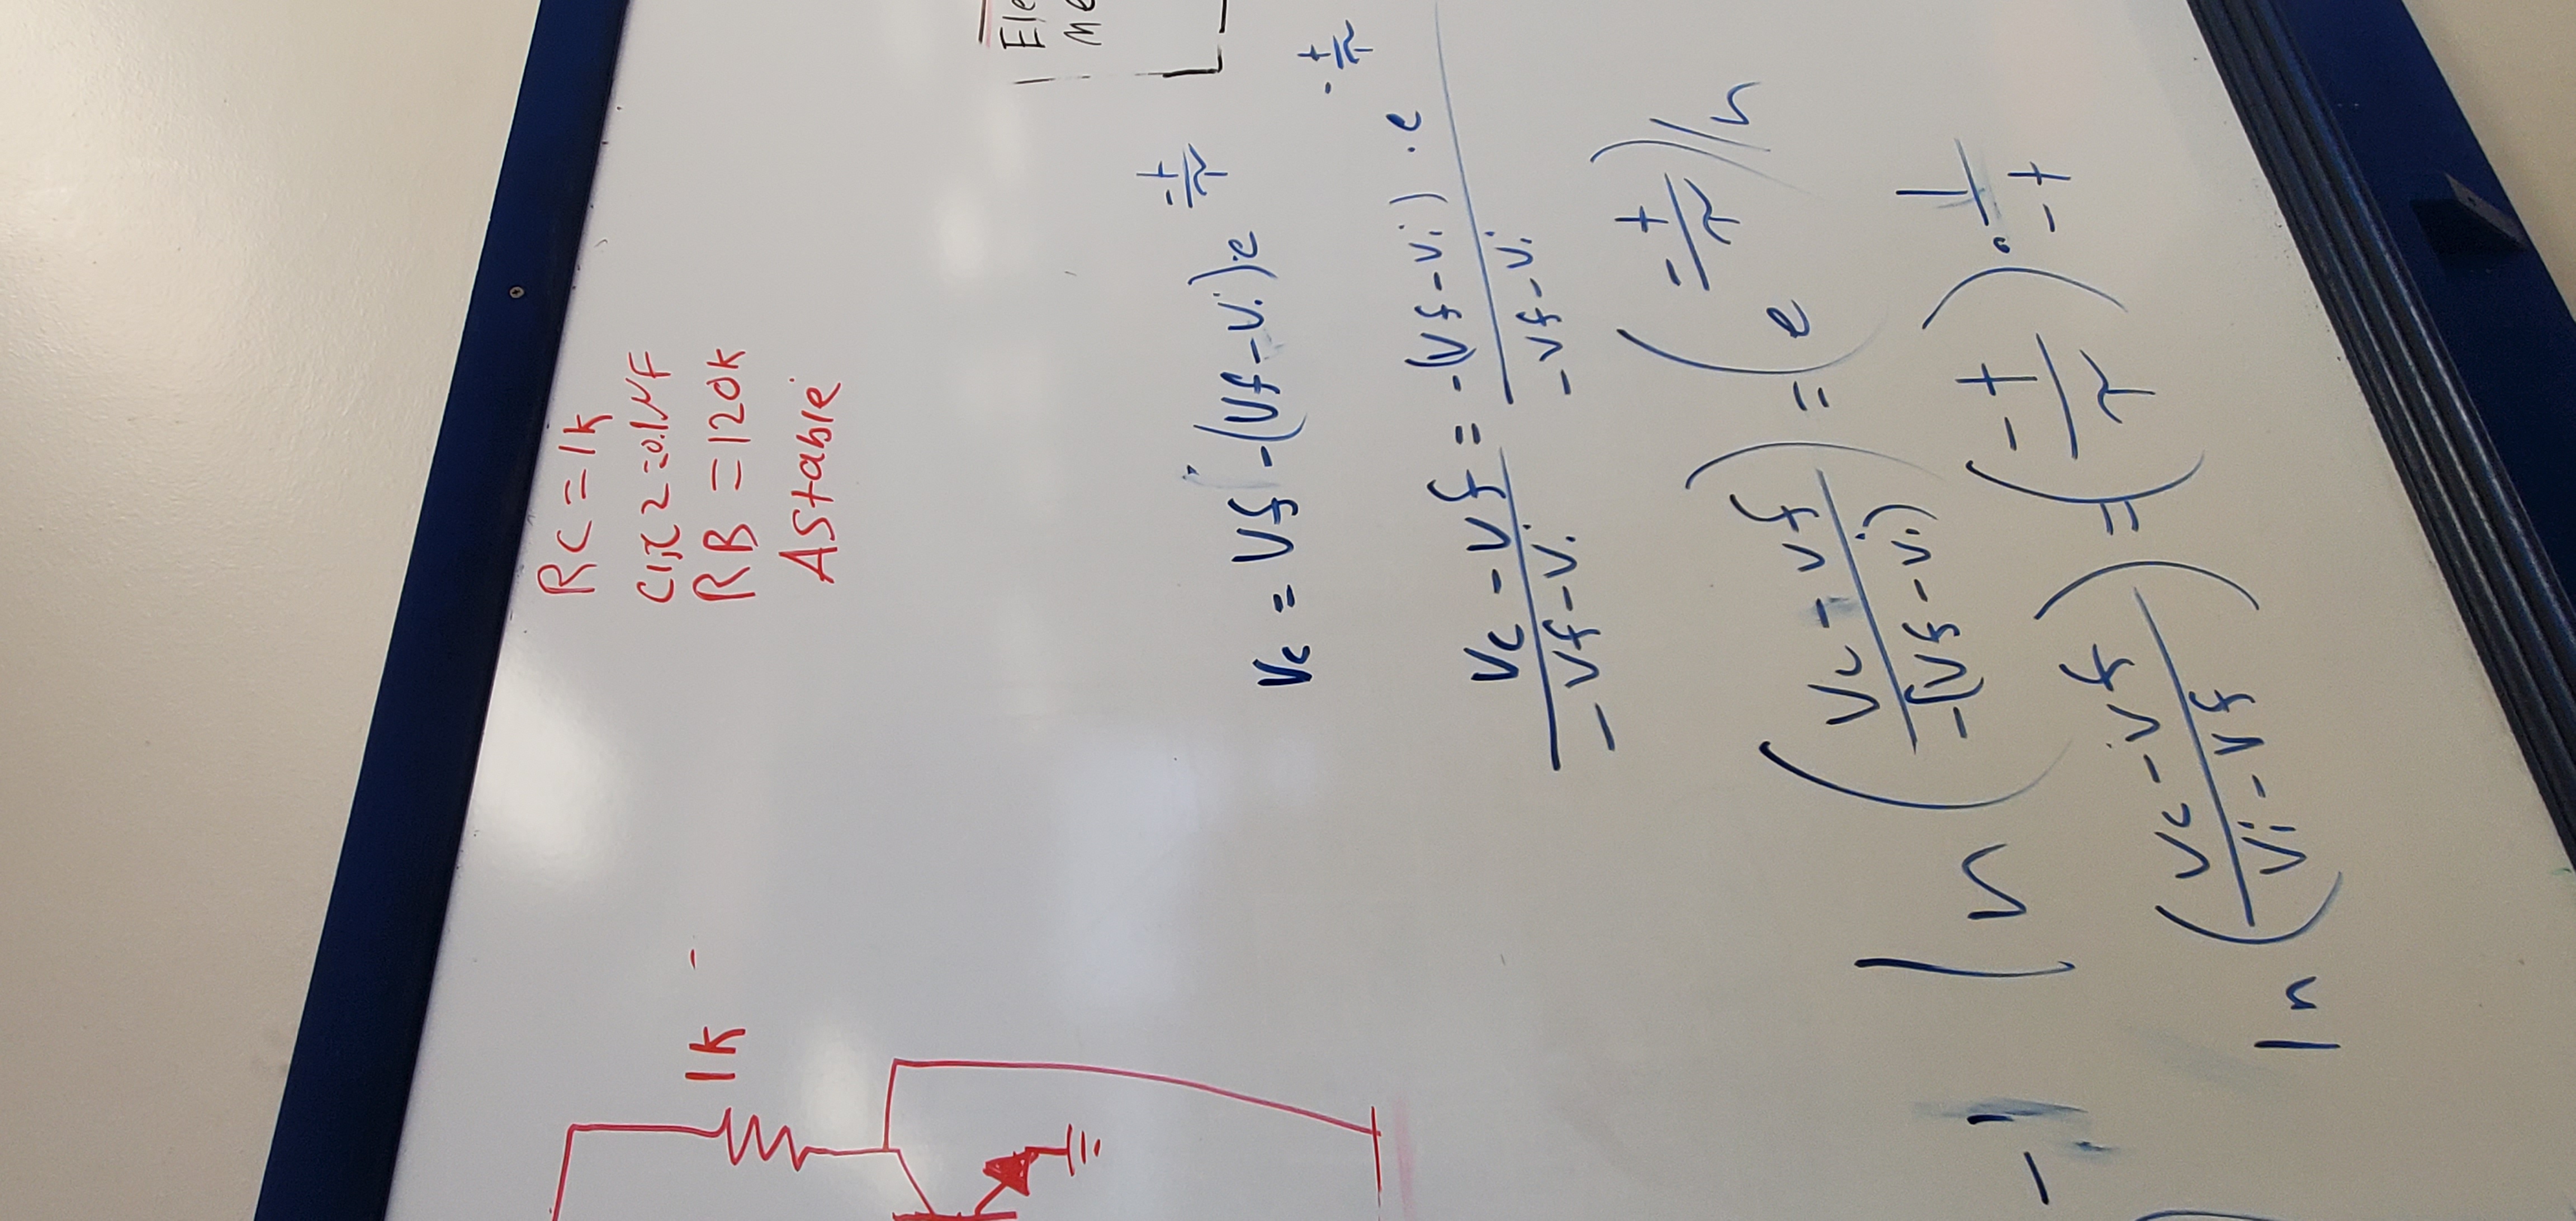 RC = 1k
C1,C2 = 0.1μF
RB = 120k
Astable
1k -
Ele
me
Vc = Vf - (Vf - Vi)·e^(-t/τ)
(Vc - Vf)/(-Vf - Vi) = (-(Vf - Vi)·e^(-t/τ))/(-Vf - Vi)
ln((Vc - Vf)/(-(Vf - Vi))) = (e^(-t/τ)) ln
-1
ln((Vc - Vf)/(Vi - Vf)) = (-t/τ)·1/-t